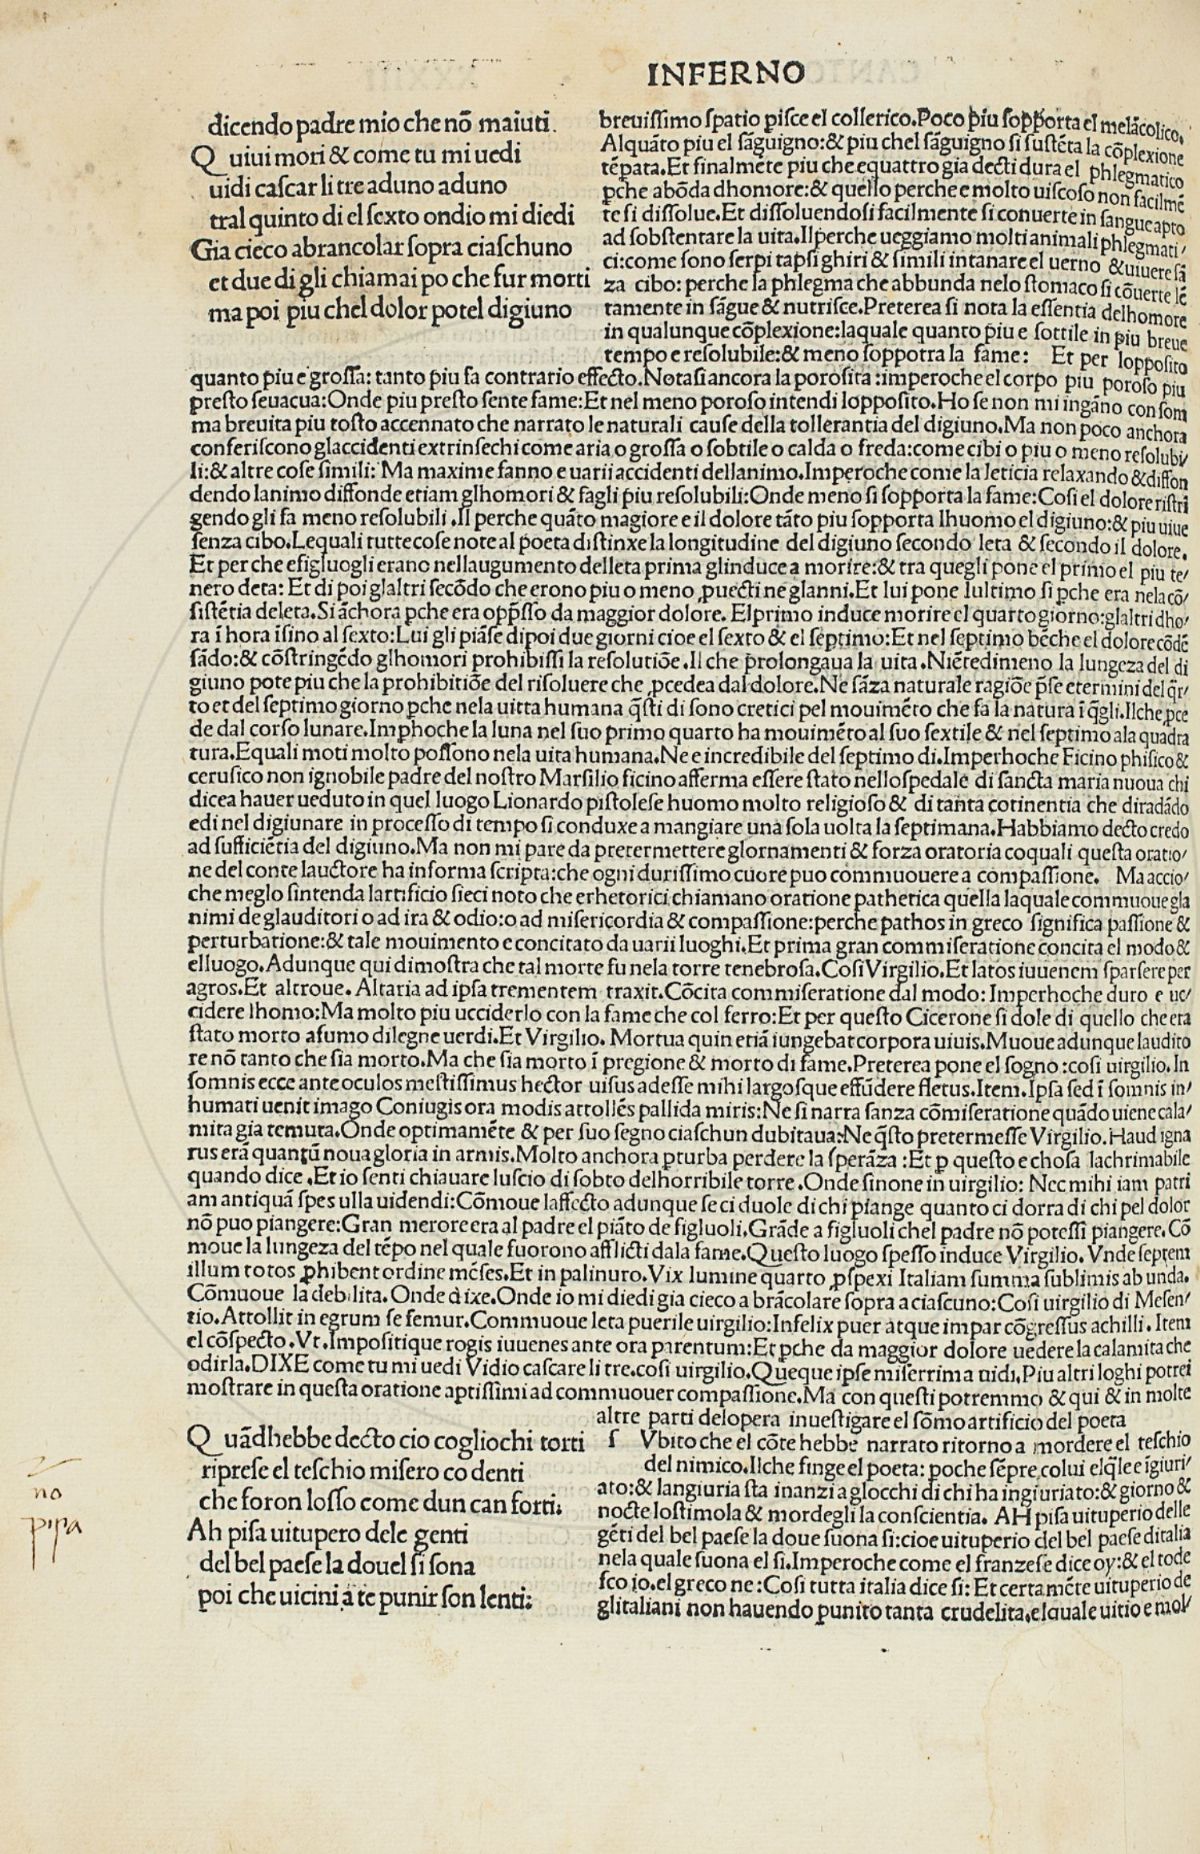 INFERNO
dicendo padre mio che nõ maiuti.
Q uiui mori & come tu mi uedi
uidi caſcar li tre aduno aduno
tral quinto di el ſexto ondio mi diedi
Gia cieco abrancolar ſopra ciaſchuno
et due di gli chiamai po che fur morti
ma poi piu chel dolor potel digiuno
breuiſſimo ſpatio piſce el collerico.Poco piu ſopporta el melãcolico.
Alquãto piu el ſãguigno:& piu chel ſãguigno ſi ſuſtẽta la cõplexione
tẽpata.Et finalmẽte piu che equattro gia decti dura el phlegmatico
pche abõda dhomore:& quello perche e molto uiſcoſo non facilmẽ
te ſi diſſolue.Et diſſoluendoſi facilmente ſi conuerte in ſangue apto
ad ſobſtentare la uita.Ilperche ueggiamo molti animali phlegmati/
ci:come ſono ſerpi tapſi ghiri & ſimili intanare el uerno & uiuere ſã
za cibo: perche la phlegma che abbunda nelo ſtomaco ſi cõuerte lẽ
tamente in ſãgue & nutriſce.Preterea ſi nota la eſſentia delhomore
in qualunque cõplexione:laquale quanto piu e ſottile in piu breue
tempo e reſolubile:& meno ſoppotra la fame: Et per loppoſito
quanto piu e groſſa: tanto piu fa contrario effecto.Notaſi ancora la poroſita :imperoche el corpo piu poroſo piu
preſto ſeuacua:Onde piu preſto ſente fame:Et nel meno poroſo intendi loppoſito.Ho ſe non mi ingãno con ſom
ma breuita piu toſto accennato che narrato le naturali cauſe della tollerantia del digiuno.Ma non poco anchora
conferiſcono glaccidenti extrinſechi come aria o groſſa o ſobtile o calda o freda:come cibi o piu o meno reſolubi/
li:& altre coſe ſimili: Ma maxime fanno e uarii accidenti dellanimo.Imperoche come la leticia relaxando & diffon
dendo lanimo diffonde etiam glhomori & fagli piu reſolubili:Onde meno ſi ſopporta la fame:Coſi el dolore riſtri
gendo gli fa meno reſolubili .Il perche quãto magiore e il dolore tãto piu ſopporta lhuomo el digiuno:& piu uiue
ſenza cibo.Lequali tutte coſe note al poeta diſtinxe la longitudine del digiuno ſecondo leta & ſecondo il dolore.
Et per che efigluogli erano nellaugumento delleta prima glinduce a morire:& tra quegli pone el primo el piu te/
nero deta: Et di poi glaltri ſecõdo che erono piu o meno ꝓuecti ne glanni.Et lui pone lultimo ſi pche era nela cõ/
ſiſtẽtia deleta.Si ãchora pche era opp̃ſſo da maggior dolore. Elprimo induce morire el quarto giorno:glaltri dho/
ra ĩ hora ĩſino al ſexto:Lui gli piãſe dipoi due giorni cioe el ſexto & el ſeptimo:Et nel ſeptimo bẽche el dolore cõdẽ
ſãdo:& cõſtringẽdo glhomori prohibiſſi la reſolutiõe .Il che prolongaua la uita .Niẽredimeno la lungeza del di
giuno pote piu che la prohibitiõe del riſoluere che ꝓcedea dal dolore.Ne ſãza naturale ragiõe pſe etermini del qr̃/
to et del ſeptimo giorno pche nela uitta humana q̃ſti di ſono cretici pel mouimẽto che fa la natura ĩ q̃gli.Ilche ꝓce
de dal corſo lunare.Imphoche la luna nel ſuo primo quarto ha mouimẽto al ſuo ſextile & nel ſeptimo ala quadra
tura.Equali moti molto poſſono nela uita humana.Ne e incredibile del ſeptimo di.Imperhoche Ficino phiſico &
ceruſico non ignobile padre del noſtro Marſilio ficino afferma eſſere ſtato nelloſpedale di ſancta maria nuoua chi
dicea hauer ueduto in quel luogo Lionardo piſtoleſe huomo molto religioſo & di tanta cotinentia che diradãdo
edi nel digiunare in proceſſo di tempo ſi conduxe a mangiare una ſola uolta la ſeptimana.Habbiamo decto credo
ad ſufficiẽtia del digiuno.Ma non mi pare da pretermettere glornamenti & forza oratoria coquali queſta oratio/
ne del conte lauctore ha informa ſcripta:che ogni duriſſimo cuore puo commuouere a compaſſione. Ma accio/
che meglo ſintenda lartificio ſieci noto che erhetorici chiamano oratione pathetica quella laquale commuoue gla
nimi de glauditori o ad ira & odio:o ad miſericordia & compaſſione:perche pathos in greco ſignifica paſſione &
perturbatione:& tale mouimento e concitato da uarii luoghi.Et prima gran commiſeratione concita el modo &
elluogo.Adunque qui dimoſtra che tal morte fu nela torre tenebroſa.Coſi Virgilio.Et latos iuuenem ſparſere per
agros.Et altroue. Altaria ad ipſa trementem traxit.Cõcita commiſeratione dal modo: Imperhoche duro e uc/
cidere lhomo:Ma molto piu ucciderlo con la fame che col ferro:Et per queſto Cicerone ſi dole di quello che era
ſtato morto afumo dilegne uerdi.Et Virgilio. Mortua quin etiã iungebat corpora uiuis.Muoue adunque laudito
re nõ tanto che ſia morto.Ma che ſia morto ĩ pregione & morto di fame.Preterea pone el ſogno :coſi uirgilio.In
ſomnis ecce ante oculos meſtiſſimus hector uiſus adeſſe mihi largoſque effũdere fletus.Item.Ipſa ſed ĩ ſomnis in/
humati uenit imago Coniugis ora modis attollẽs pallida miris:Ne ſi narra ſanza cõmiſeratione quãdo uiene cala/
mita gia temuta.Onde optimamẽte & per ſuo ſegno ciaſchun dubitaua:Ne q̃ſto pretermeſſe Virgilio.Haud igna
rus erã quantũ noua gloria in armis.Molto anchora pturba perdere la ſperãza :Et p queſto e choſa lachrimabile
quando dice .Et io ſenti chiauare luſcio di ſobto delhorribile torre .Onde ſinone in uirgilio: Nec mihi iam patri
am antiquã ſpes ulla uidendi:Cõmoue laffecto adunque ſe ci duole di chi piange quanto ci dorra di chi pel dolor
nõ puo piangere:Gran merore era al padre el piãto de figluoli.Grãde a figluoli chel padre nõ poteſſi piangere.Cõ
moue la lungeza del tẽpo nel quale fuorono afflicti dala fame.Queſto luogo ſpeſſo induce Virgilio. Vnde ſeptem
illum totos ꝓhibent ordine mẽſes.Et in palinuro.Vix lumine quarto ꝓſpexi Italiam ſumma ſublimis ab unda.
Cõmuoue la debilita. Onde dixe.Onde io mi diedi gia cieco a brãcolare ſopra a ciaſcuno:Coſi uirgilio di Meſen/
tio.Attollit in egrum ſe femur.Commuoue leta puerile uirgilio:Infelix puer atque impar cõgreſſus achilli. Item
el cõſpecto.Vt.Impoſitique rogis iuuenes ante ora parentum:Et pche da maggior dolore uedere la calamita che
odirla.DIXE come tu mi uedi Vidio caſcare li tre.coſi uirgilio.Queque ipſe miſerrima uidi.Piu altri loghi potrei
moſtrare in queſta oratione aptiſſimi ad commuouer compaſſione.Ma con queſti potremmo & qui & in molte
altre parti delopera inueſtigare el ſõmo artificio del poeta
Q uãdhebbe decto cio cogliochi torti
ripreſe el teſchio miſero co denti
che foron loſſo come dun can forti:
Ah piſa uitupero dele genti
del bel paeſe la douel ſi ſona
poi che uicini a te punir ſon lenti:
ſ Vbito che el cõte hebbe narrato ritorno a mordere el teſchio
del nimico.Ilche finge el poeta: poche ſẽpre colui elq̃le e ĩgiuri/
ato:& langiuria ſta inanzi a glocchi di chi ha ingiuriato:& giorno &
nocte loſtimola & mordegli la conſcientia. AH piſa uituperio delle
gẽti del bel paeſe la doue ſuona ſi:cioe uituperio del bel paeſe ditalia
nela quale ſuona el ſi.Imperoche come el franzeſe dice oy:& el tode
ſco io.el greco ne:Coſi tutta italia dice ſi: Et certamẽte uituperio de
glitaliani non hauendo punito tanta crudelita.elquale uitio e mol/
no
pisa